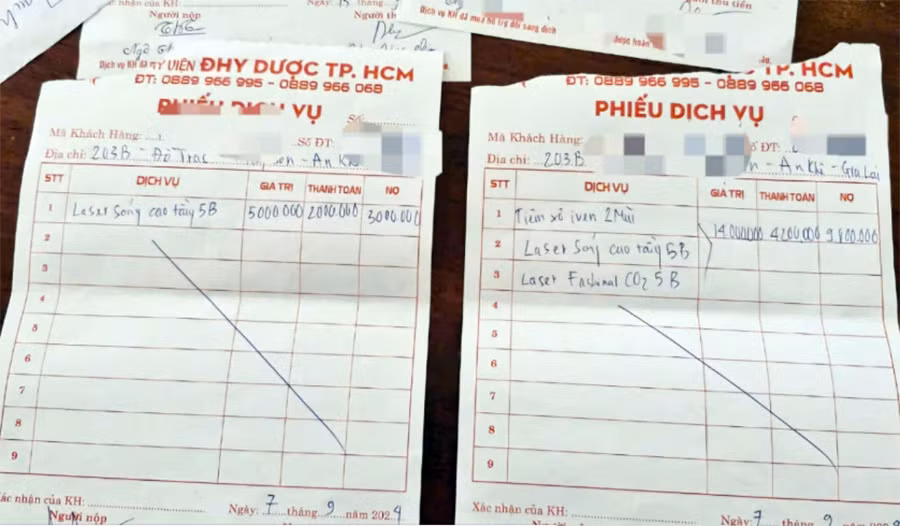 Người nộp
Dịch vụ KH đã mua hỗ trợ đổi sang dịch
thu tiền
được hoàn
VIỆN ĐHY DƯỢC TP. HCM
ĐT: 0889 966 995 - 0889 966 068
PHIẾU DỊCH VỤ
Mã Khách Hàng:
Số ĐT:
Địa chỉ: 203B - Đỗ Trạc - An Khê
STT DỊCH VỤ GIÁ TRỊ THANH TOÁN NỢ
1 Laser Sóng cao tầng 5B 5000.000 2000.000 3000.000
2
3
4
5
6
7
8
9
Xác nhận của KH:
Ngày: 7 tháng 9 năm 2024
Người nộp
TP. HCM
ĐT: 0889 966 995 - 0889 966 068
PHIẾU DỊCH VỤ
Mã Khách Hàng:
Số ĐT:
Địa chỉ: 203B - An Khê - Gia Lai
STT DỊCH VỤ GIÁ TRỊ THANH TOÁN NỢ
1 Tiêm xô iven 2 Mũi
14.000.000 4200.000 9.800.000
2 Laser Sóng cao tầng 5B
3 Laser Faslional CO2 5B
4
5
6
7
8
9
Xác nhận của KH:
Ngày: 7 tháng 9 năm 2024